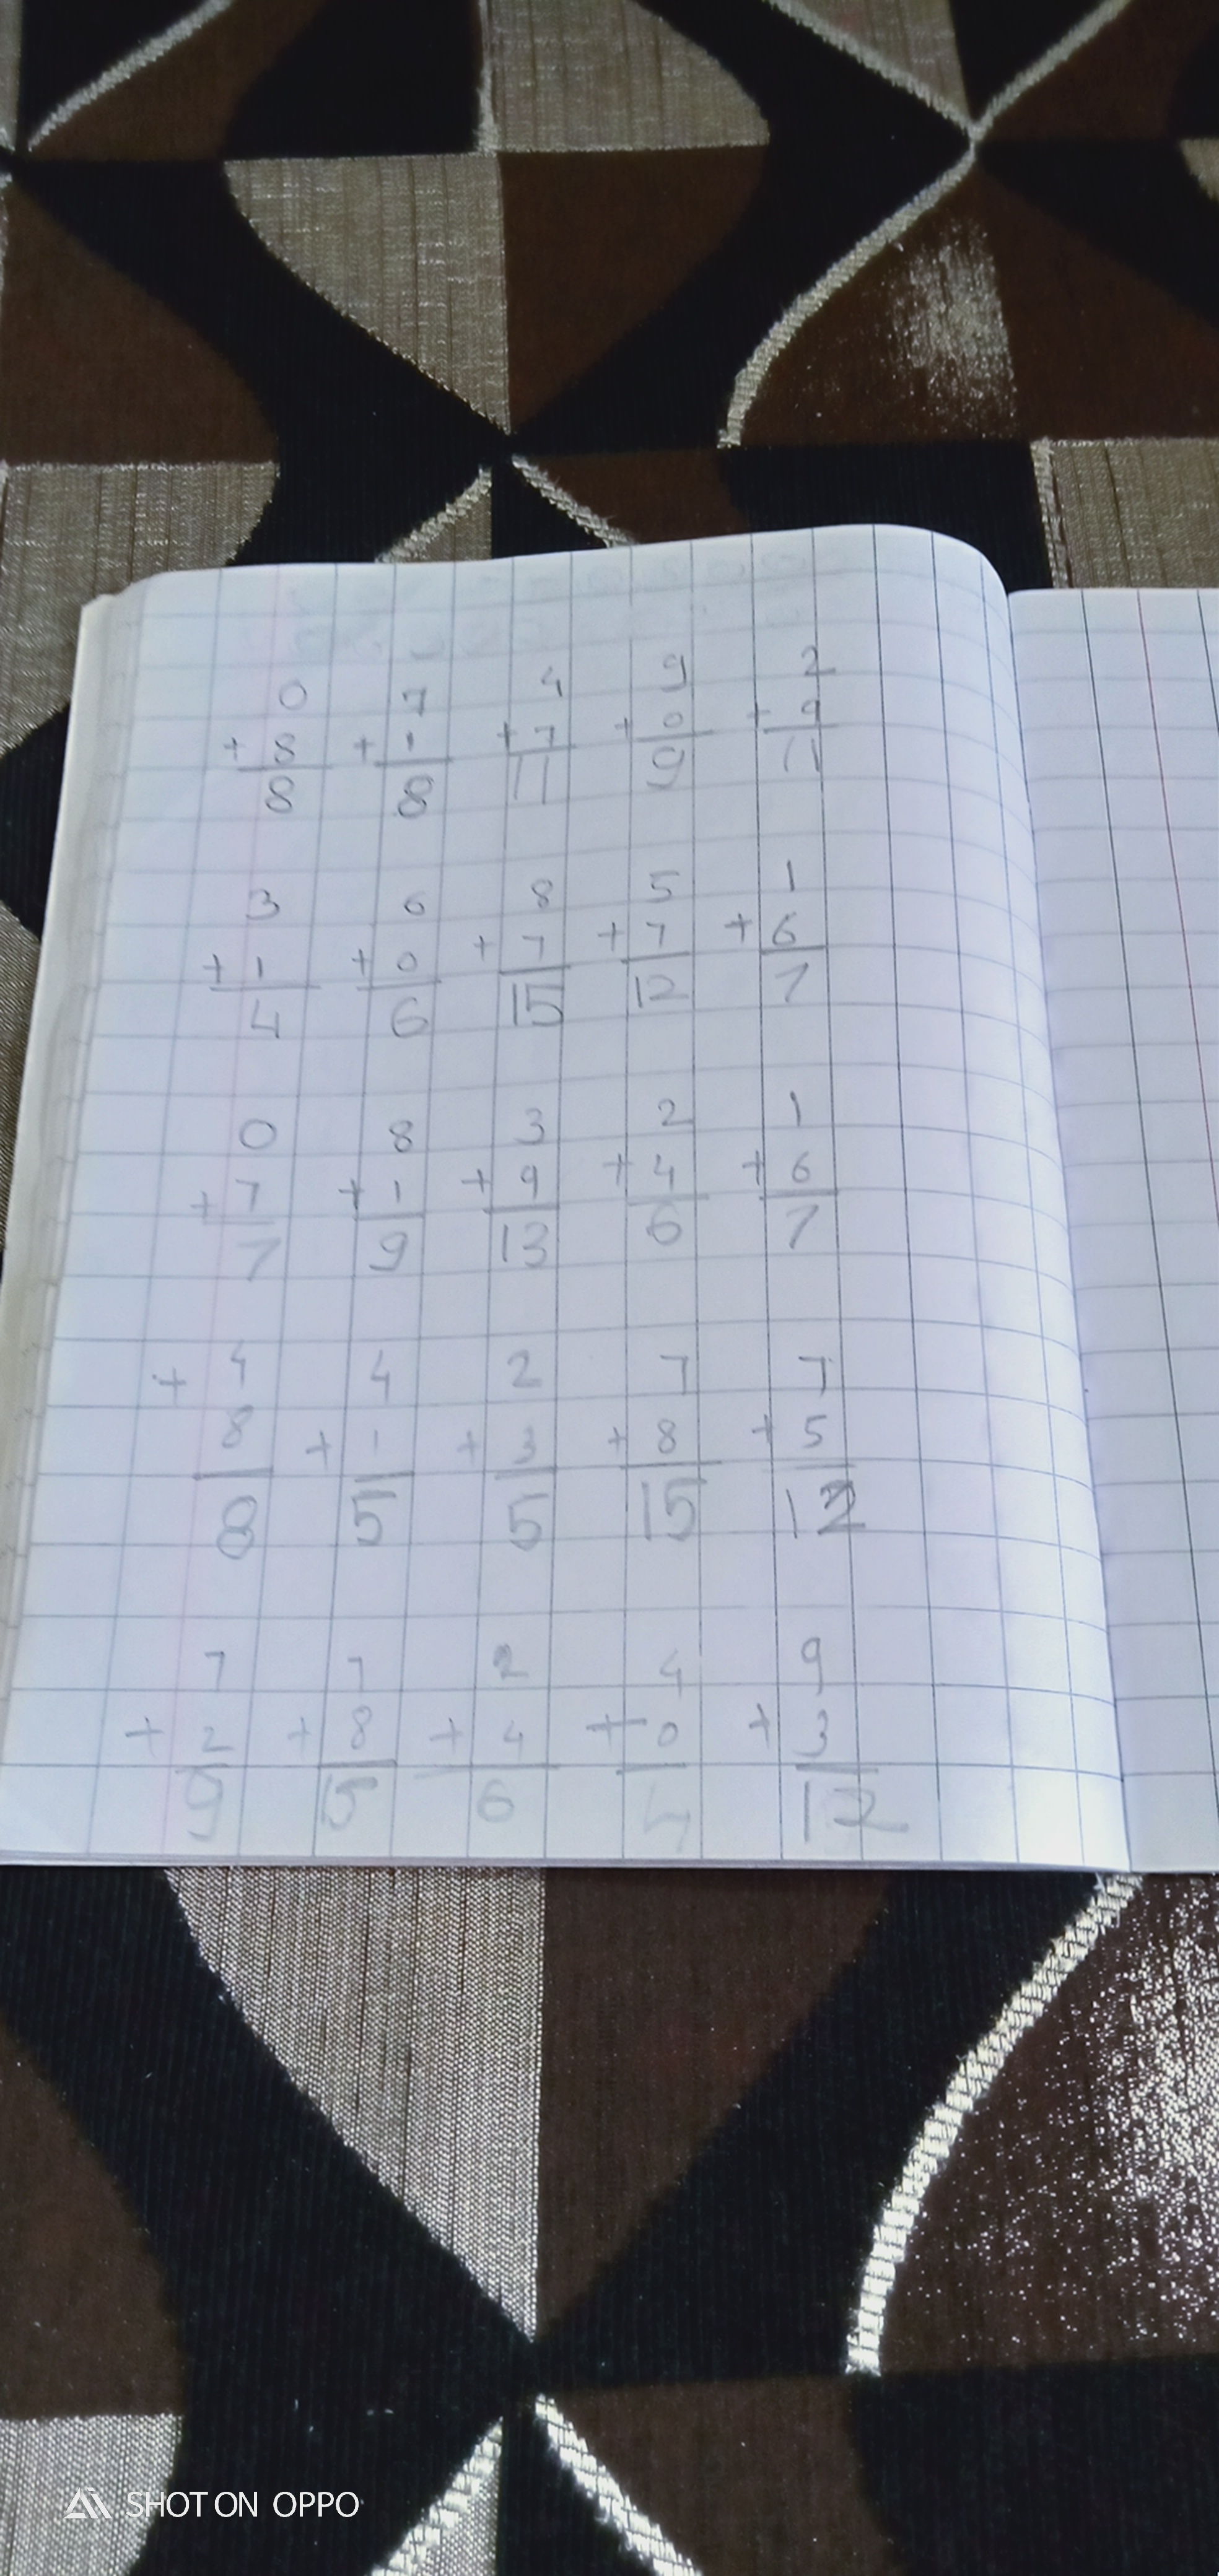 0 7 4 9 2
+ 8 + 1 + 7 + 0 + 9
8 8 11 9 11
3 6 8 5 1
+ 1 + 0 + 7 + 7 + 6
4 6 15 12 7
0 8 3 2 1
+ 7 + 1 + 9 + 4 + 6
7 9 13 6 7
+ 4 4 2 7 7
8 + 1 + 3 + 8 + 5
8 5 5 15 12
7 7 2 4 9
+ 2 + 8 + 4 + 0 + 3
9 15 6 4 12
SHOT ON OPPO